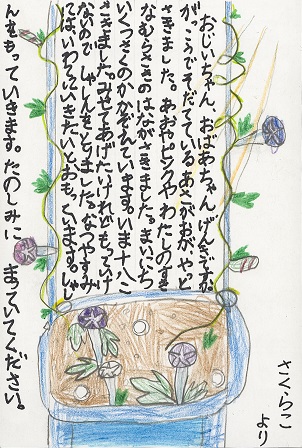 おじいちゃん、おばあちゃん、げんきですか。
がっこうでそだてているあさがおが、やっと
さきました。あおやピンクや わたしのすき
なむらさきのはながさきました。まいにち
いくつさくのかかぞえています。いま十八こ
さきました。みせてあげたいけれどもっていけ
ないので しゃしんをとりました。なつやすみ
には、いわてにいきたいとおもっています。しゃ
んをもっていきます。たのしみに まっていてください。
さくらこ
より